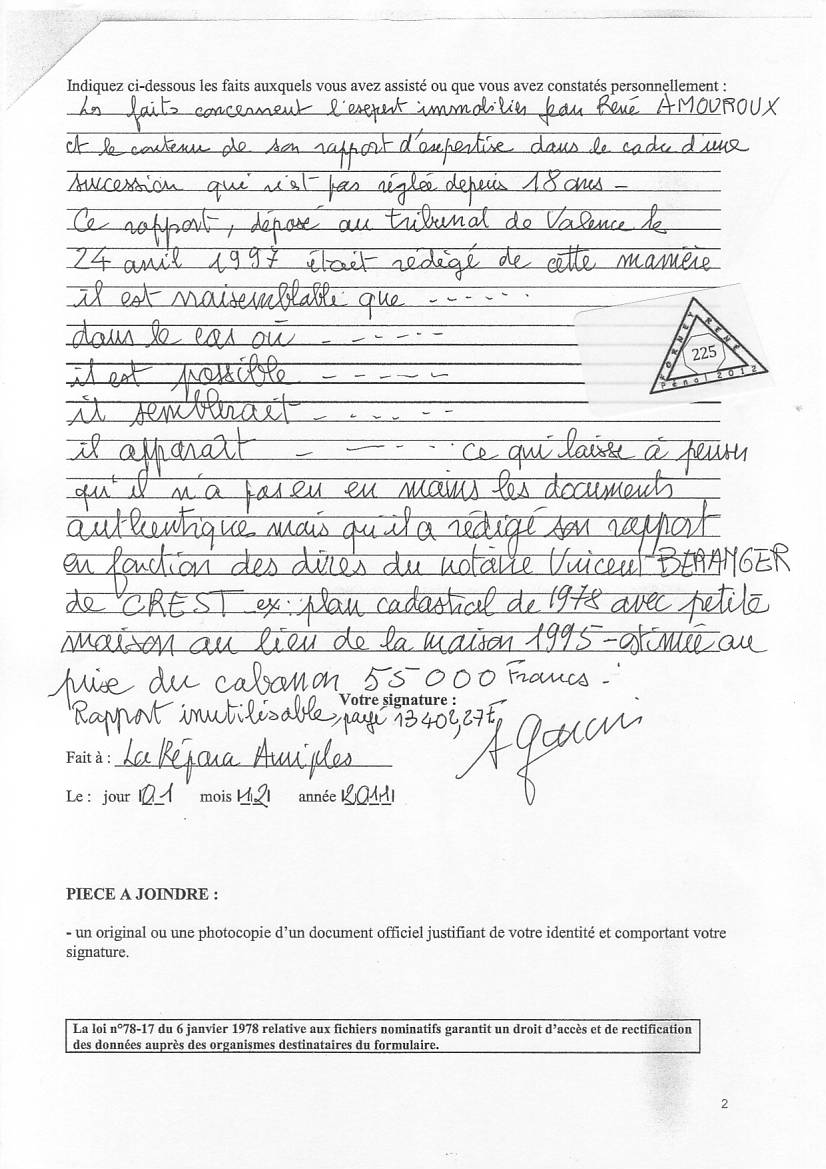 Indiquez ci-dessous les faits auxquels vous avez assisté ou que vous avez constatés personnellement :
Les faits concernent l'expert immobilier Jean René AMOUROUX
et le contenu de son rapport d'expertise dans le cadre d'une
succession qui n'est pas réglée depuis 18 ans -
Ce rapport, déposé au tribunal de Valence le
24 avril 1997 était rédigé de cette manière
il est vraisemblable que - - - - - -
dans le cas où - - - - - -
il est possible - - - - - -
il semblerait - - - - - -
il apparaît - - - - - - ce qui laisse à penser
qu'il n'a pas eu en mains les documents
authentique mais qu'il a rédigé son rapport
en fonction des dires du notaire Vincent BERANGER
de CREST ex: plan cadastral de 1978 avec petite
maison au lieu de la maison 1995 - estimée au
prise du cabanon 55 000 Francs -
Votre signature :
Rapport inutilisable, payé 13402,27F
Fait à : La Répara Auriples
Le : jour 01 mois 12 année 2011
FORNEY RENÉ
225
Pénal 2012
PIECE A JOINDRE :
- un original ou une photocopie d'un document officiel justifiant de votre identité et comportant votre
signature.
La loi n°78-17 du 6 janvier 1978 relative aux fichiers nominatifs garantit un droit d'accès et de rectification
des données auprès des organismes destinataires du formulaire.
2